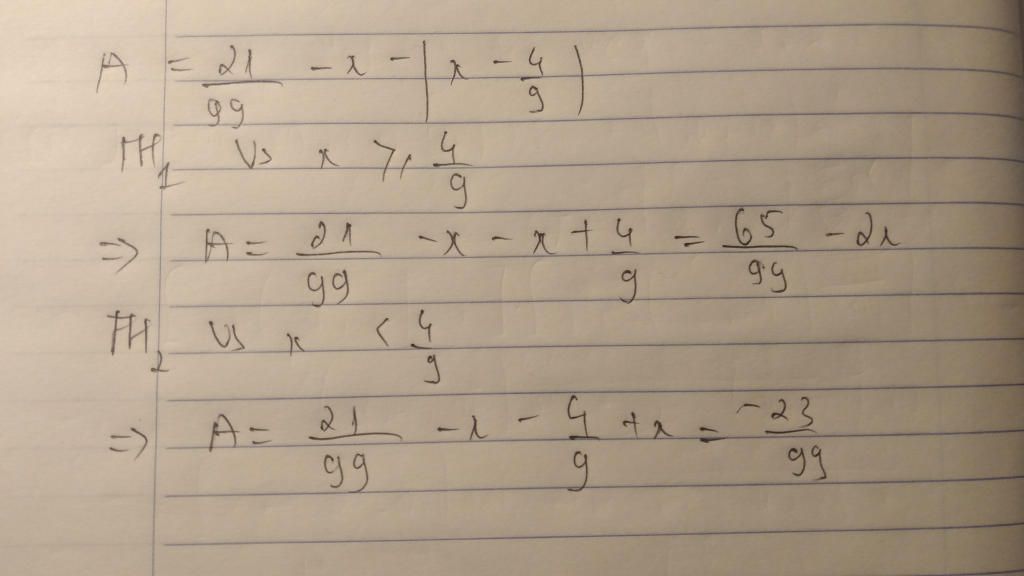 A = 21/99 - x - |x - 4/9|
TH1 Vs x ≥ 4/9
=> A = 21/99 - x - x + 4/9 = 65/99 - 2x
TH2 Vs x < 4/9
=> A = 21/99 - x - 4/9 + x = -23/99